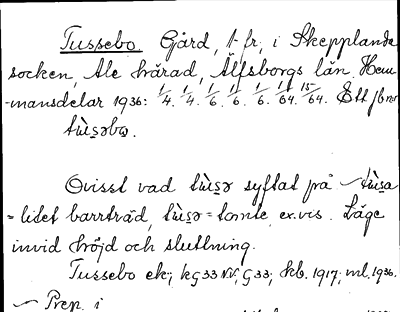 Tussebo. Gård, 1 fr, i Skepplanda
socken, Ale härad, Älfsborgs län. Hem-
mansdelar 1936: 1/4. 1/4. 1/6. 1/6. 1/64. 15/64. Ett fbr
tùs̱ǝbω.
Ovisst vad tùs̱ǝ syftat på ~ tùs̱a
= litet barrträd, tùs̱ǝ = tomte, ex.vis. Läge
invid höjd och sluttning.
Tussebo ek; kG33NV, G33, hb. 1917; ml. 1936.
~ Prep. i